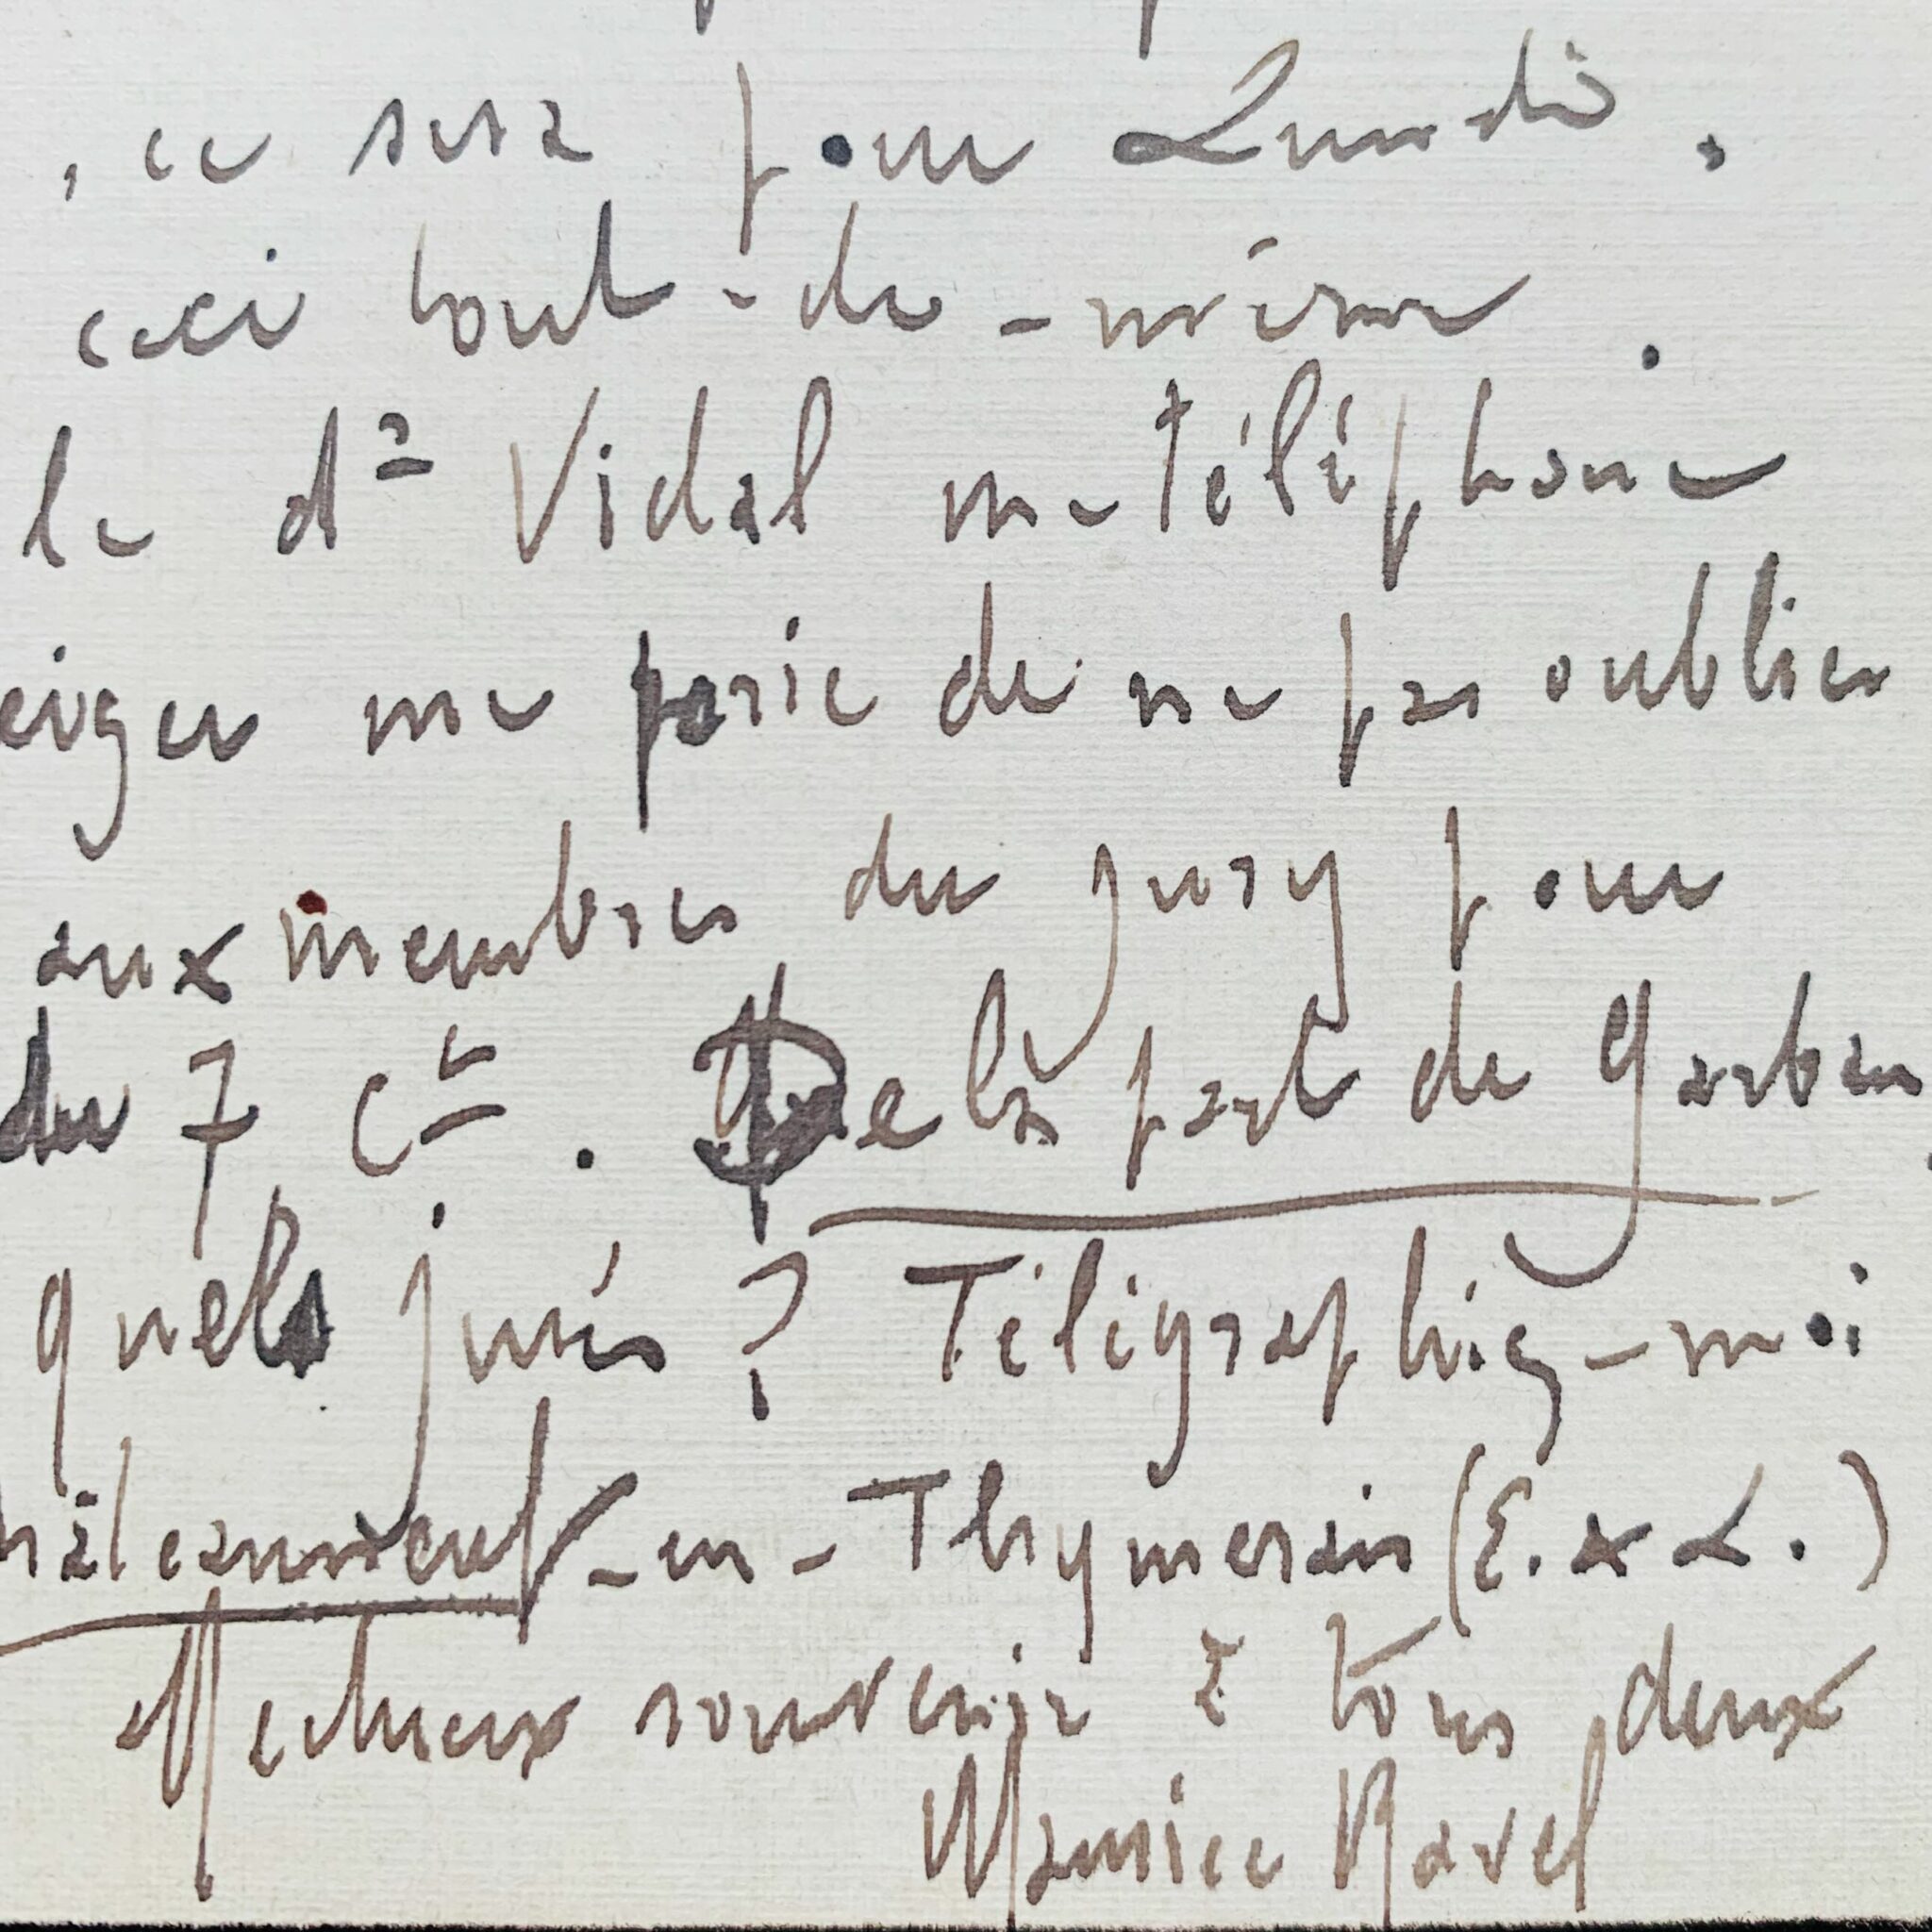 , ce sera pour Lundi.
ceci tout-de-même.
le dr Vidal me téléphone
erger me prie de ne pas oublier
aux membres du jury pour
du 7 ct. De la part de Garban,
quels jurés? Télégraphiez-moi
hâteauneuf-en-Thymerais (E. & L.)
Meilleur souvenir à tous deux
Maurice Ravel